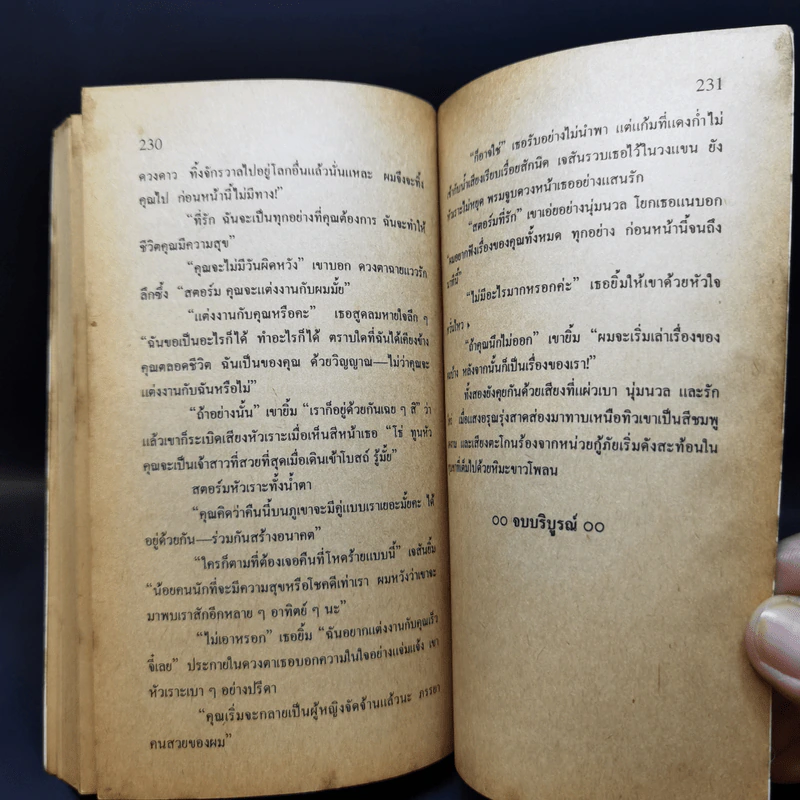 230
ดวงดาว ทิ้งจักรวาลไปอยู่โลกอื่นแล้วนั่นแหละ ผมจึงจะทิ้ง
คุณไป ก่อนหน้านี้ไม่มีทาง!"
"ที่รัก ฉันจะเป็นทุกอย่างที่คุณต้องการ ฉันจะทำให้
ชีวิตคุณมีความสุข"
"คุณจะไม่มีวันผิดหวัง" เขาบอก ดวงตาฉายแววรัก
ลึกซึ้ง "สตอร์ม คุณจะแต่งงานกับผมมั้ย"
"แต่งงานกับคุณหรือคะ" เธอสูดลมหายใจลึก ๆ
"ฉันขอเป็นอะไรก็ได้ ทำอะไรก็ได้ ตราบใดที่ฉันได้เคียงข้าง
คุณตลอดชีวิต ฉันเป็นของคุณ ด้วยวิญญาณ—ไม่ว่าคุณจะ
แต่งงานกับฉันหรือไม่"
"ถ้าอย่างนั้น" เขายิ้ม "เราก็อยู่ด้วยกันเฉย ๆ สิ" ว่า
แล้วเขาก็ระเบิดเสียงหัวเราะเมื่อเห็นสีหน้าเธอ "โธ่ ทูนหัว
คุณจะเป็นเจ้าสาวที่สวยที่สุดเมื่อเดินเข้าโบสถ์ รู้มั้ย"
สตอร์มหัวเราะทั้งน้ำตา
"คุณคิดว่าคืนนี้บนภูเขาจะมีคู่แบบเราเยอะมั้ยคะ ได้
อยู่ด้วยกัน—ร่วมกันสร้างอนาคต"
"ใครก็ตามที่ต้องเจอคืนที่โหดร้ายแบบนี้" เจสันยิ้ม
"น้อยคนนักที่จะมีความสุขหรือโชคดีเท่าเรา ผมหวังว่าเขาจะ
มาพบเราสักอีกหลาย ๆ อาทิตย์ ๆ นะ"
"ไม่เอาหรอก" เธอยิ้ม "ฉันอยากแต่งงานกับคุณเร็ว
จี๋เลย" ประกายในดวงตาเธอบอกความในใจอย่างแจ่มแจ้ง เขา
หัวเราะเบา ๆ อย่างปรีดา
"คุณเริ่มจะกลายเป็นผู้หญิงจัดจ้านแล้วนะ ภรรยา
คนสวยของผม"
231
"ก็อาจใช่" เธอรับอย่างไม่นำพา แต่แก้มที่แดงก่ำไม่
เข้ากับน้ำเสียงเรียบเรื่อยสักนิด เจสันรวบเธอไว้ในวงแขน ยัง
หัวเราะไม่หยุด พรมจูบดวงหน้าเธออย่างแสนรัก
"สตอร์มที่รัก" เขาเอ่ยอย่างนุ่มนวล โยกเธอแนบอก
"ผมอยากฟังเรื่องของคุณทั้งหมด ทุกอย่าง ก่อนหน้านี้จนถึง
นาทีนี้"
"ไม่มีอะไรมากหรอกค่ะ" เธอยิ้มให้เขาด้วยหัวใจ
"ถ้าคุณนึกไม่ออก" เขายิ้ม "ผมจะเริ่มเล่าเรื่องของ
หลังจากนั้นก็เป็นเรื่องของเรา!"
ทั้งสองยังคุยกันด้วยเสียงที่แผ่วเบา นุ่มนวล และรัก
เมื่อแสงอรุณรุ่งสาดส่องมาทาบเหนือทิวเขาเป็นสีชมพู
และเสียงตะโกนร้องจากหน่วยกู้ภัยเริ่มดังสะท้อนใน
ที่เต็มไปด้วยหิมะขาวโพลน
๐๐ จบบริบูรณ์ ๐๐